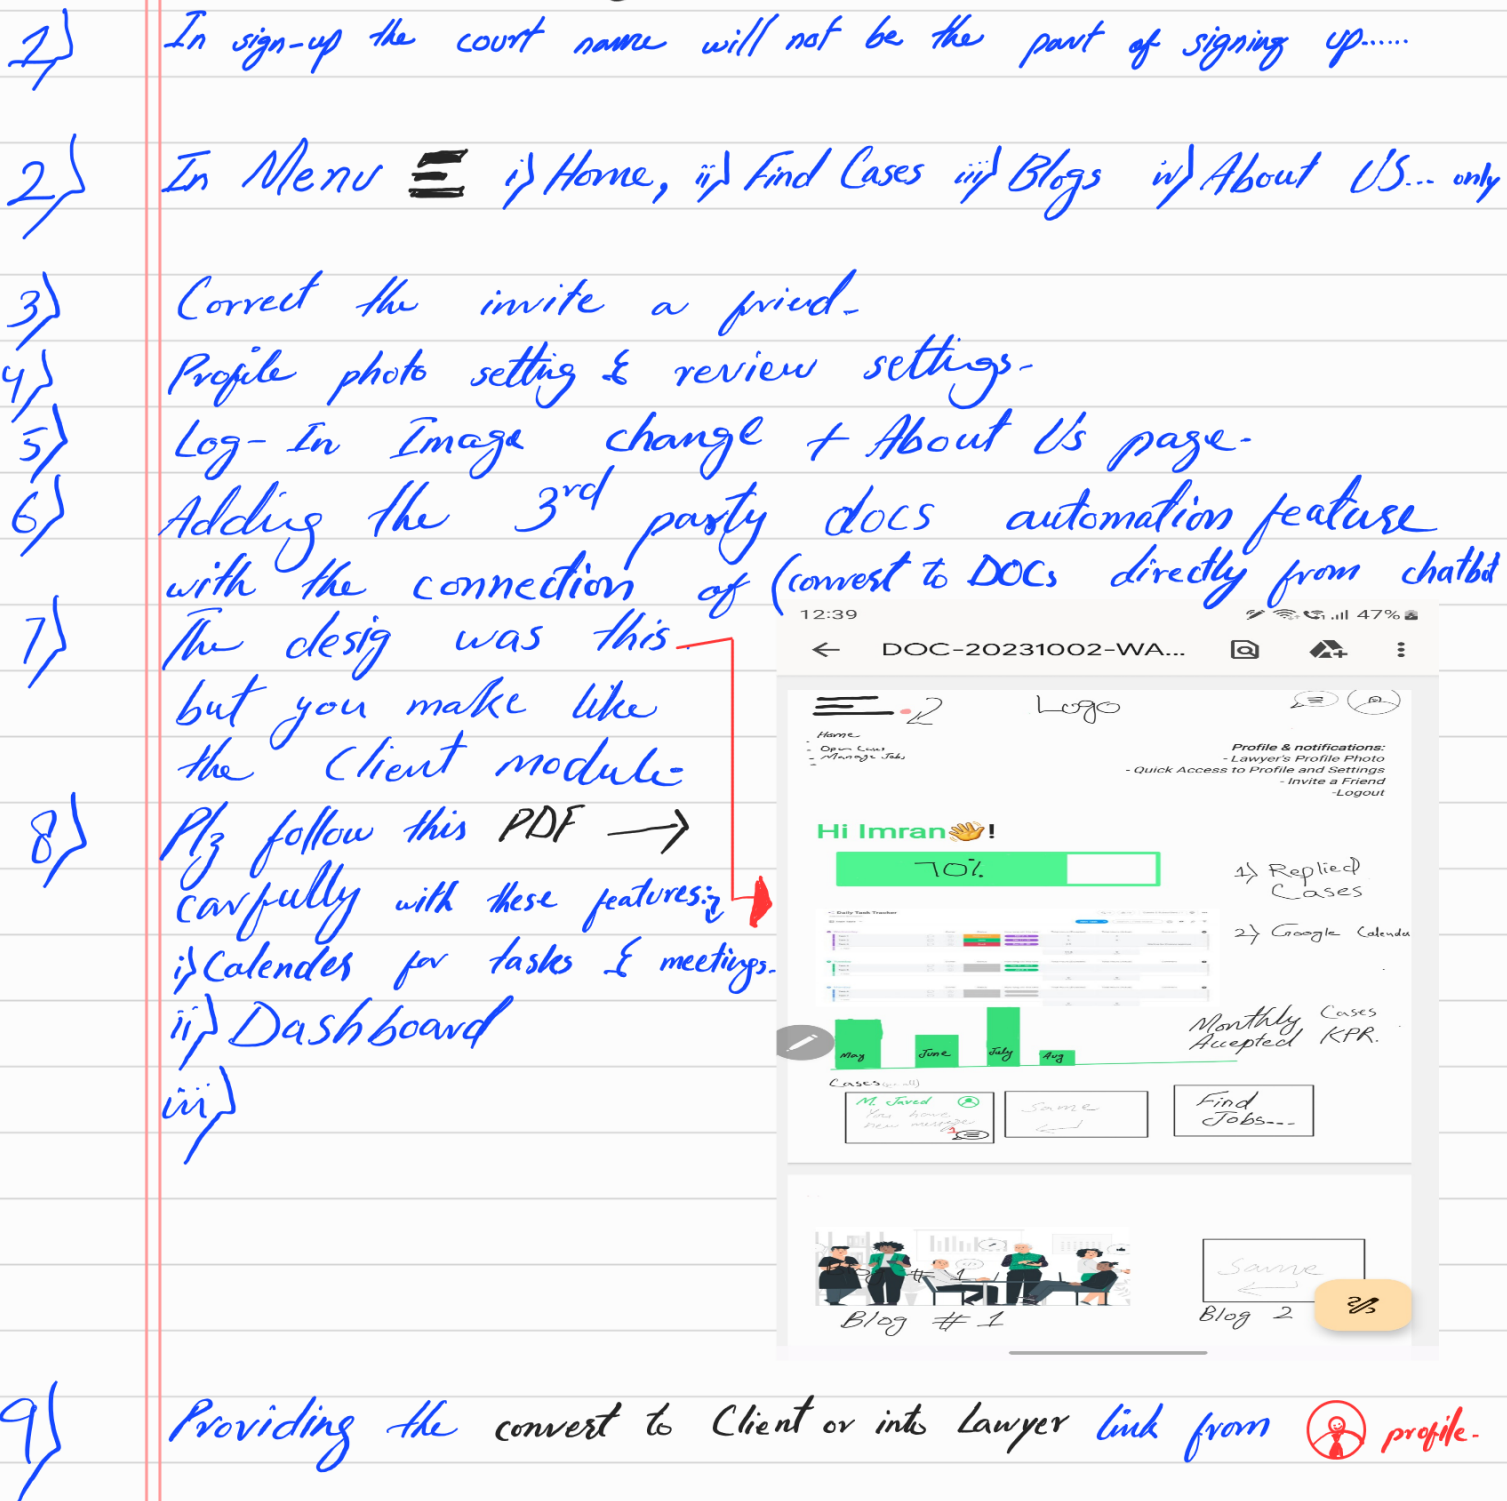 1) In sign-up the court name will not be the part of signing up......
2) In Menu i) Home, ii) Find Cases iii) Blogs iv) About US... only
3) Correct the invite a friend-
4) Profile photo setting & review settings-
5) Log-In Image change + About Us page-
6) Adding the 3rd party docs automation feature
with the connection of (convert to DOCs directly from chatbot
7) The desig was this
but you make like
the Client module-
8) Plz follow this PDF →
carfully with these features:
i) Calender for tasks & meetings-
ii) Dashboard
iii)
12:39 47%
DOC-20231002-WA...
2 Logo
Home
- Open Cases
- Manage Jobs
Profile & notifications:
- Lawyer's Profile Photo
- Quick Access to Profile and Settings
- Invite a Friend
-Logout
Hi Imran👋!
70%
1) Replied
Cases
Daily Task Tracker
2) Google Calendar
Monthly Cases
Accepted KPR.
May June July Aug
Cases (see all)
M. Javed
You have
new message
1
Same
Find
Jobs---
# 1
Same
Blog # 1
Blog 2
9) Providing the convert to Client or into Lawyer link from profile-